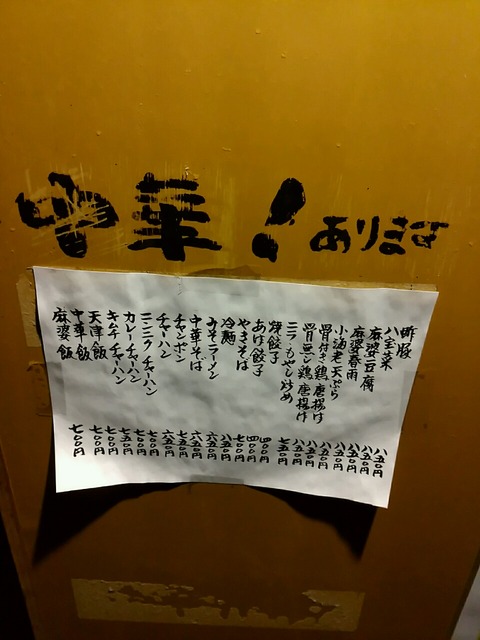 中華!あります
酢豚 八五〇円
八宝菜 八五〇円
麻婆豆腐 八五〇円
麻婆春雨 八五〇円
小海老天ぷら 八五〇円
骨付き鶏唐揚げ 八五〇円
骨無し鶏唐揚げ 八五〇円
ニラもやし炒め 七五〇円
焼餃子 四〇〇円
あげ餃子 四〇〇円
やきそば 七〇〇円
冷麺 八五〇円
みそラーメン 六五〇円
中華そば 六五〇円
チャンポン 七五〇円
チャーハン 六五〇円
ニンニクチャーハン 七〇〇円
カレーチャーハン 七〇〇円
キムチチャーハン 七五〇円
天津飯 七〇〇円
中華飯 七〇〇円
麻婆飯 七〇〇円